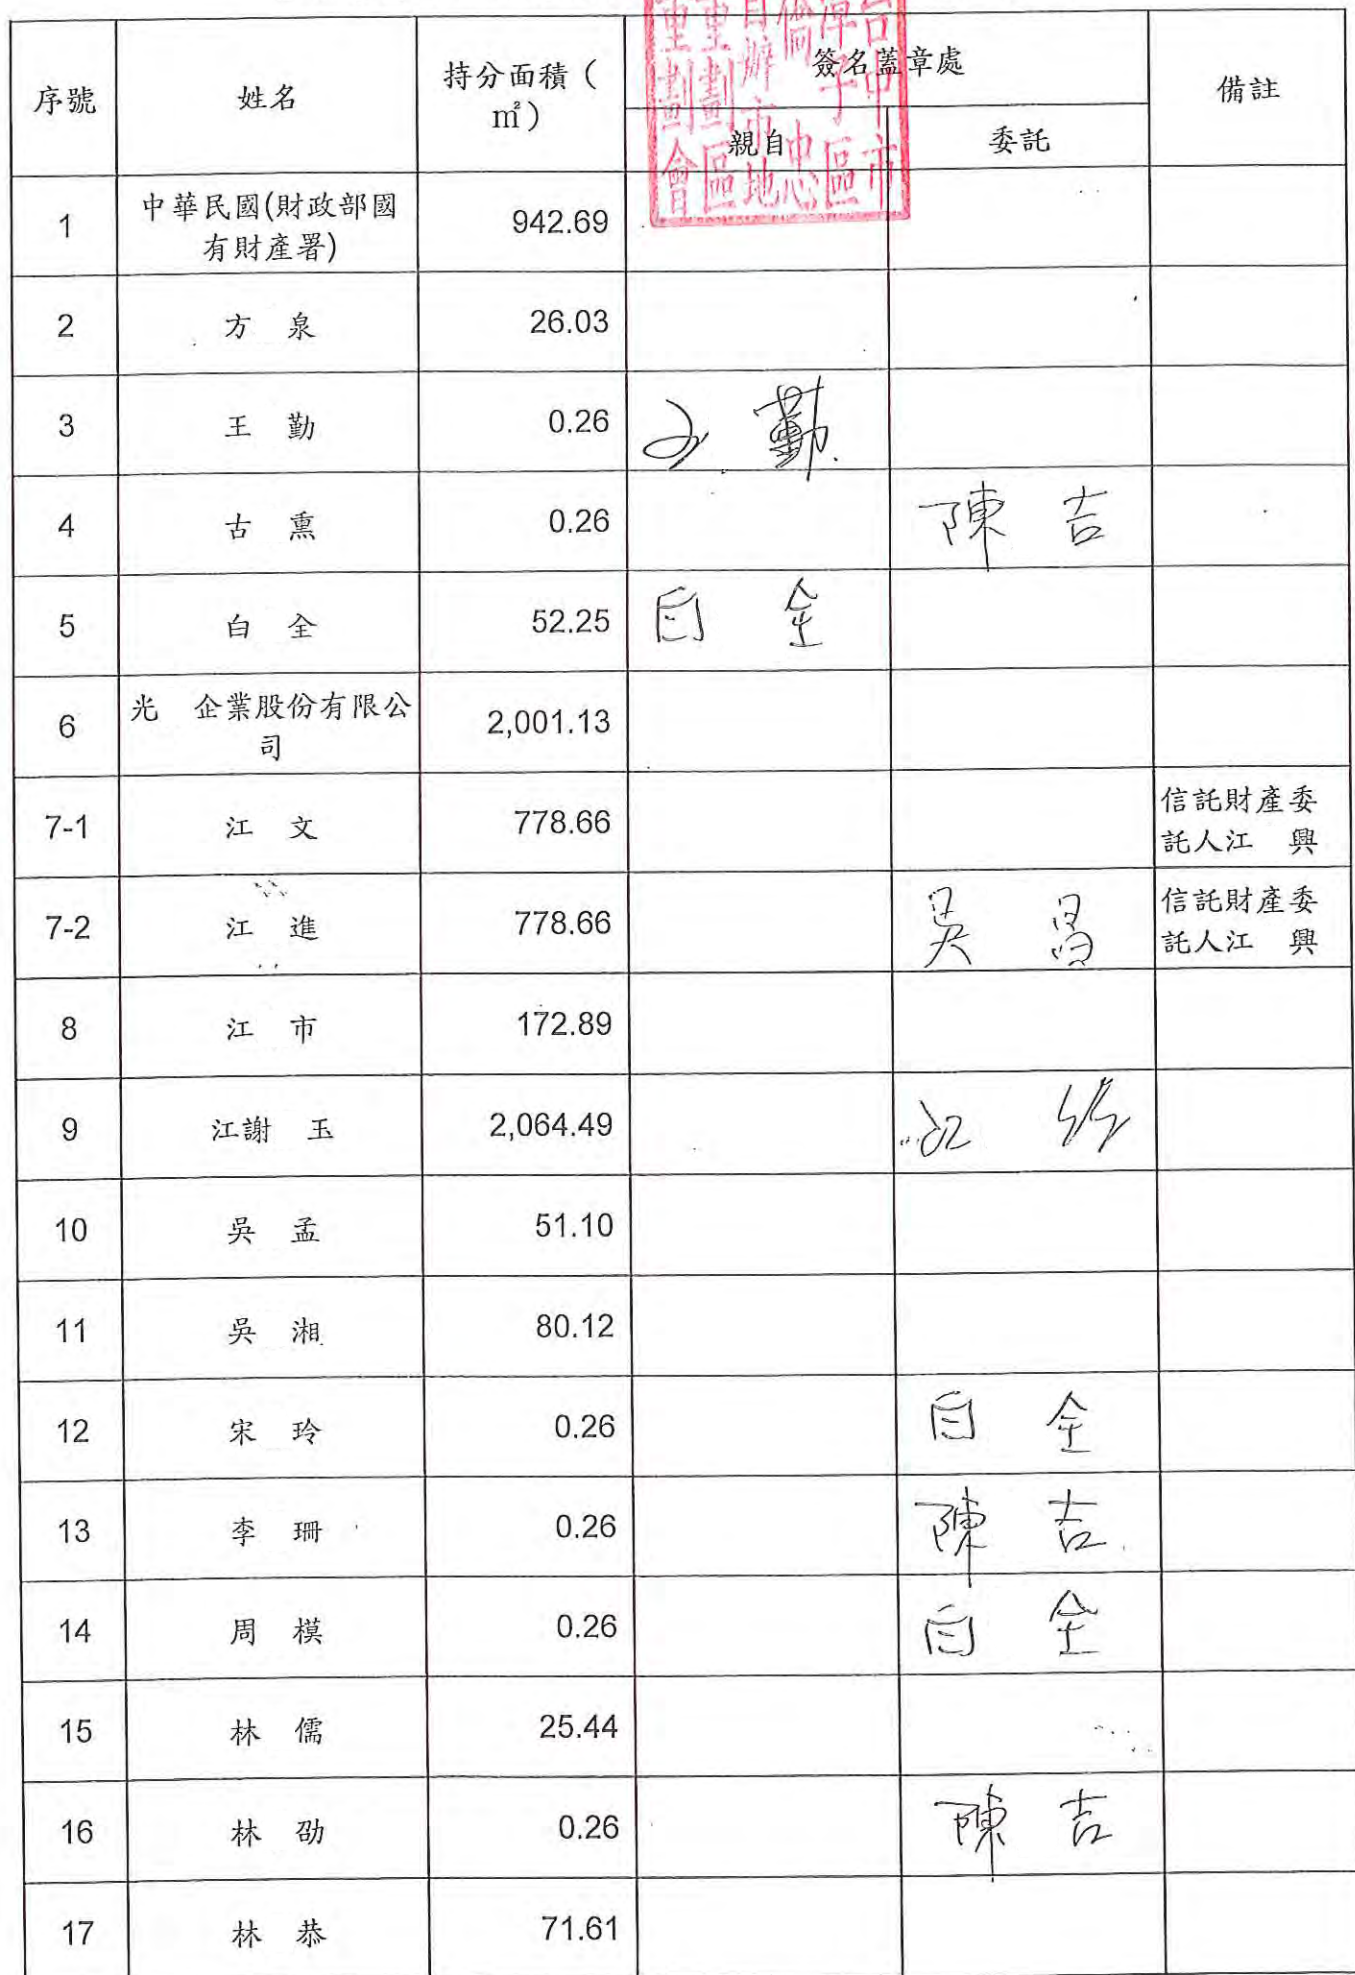 序號 姓名 持分面積（㎡） 簽名蓋章處 備註
親自 委託
1 中華民國(財政部國有財產署) 942.69
2 方 泉 26.03
3 王 勤 0.26 王 勤
4 古 熏 0.26 陳 吉
5 白 全 52.25 白 全
6 光 企業股份有限公司 2,001.13
7-1 江 文 778.66 信託財產委託人江 興
7-2 江 進 778.66 吳 昌 信託財產委託人江 興
8 江 市 172.89
9 江謝 玉 2,064.49 江
10 吳 孟 51.10
11 吳 湘 80.12
12 宋 玲 0.26 白 全
13 李 珊 0.26 陳 吉
14 周 模 0.26 白 全
15 林 儒 25.44
16 林 劭 0.26 陳 吉
17 林 恭 71.61